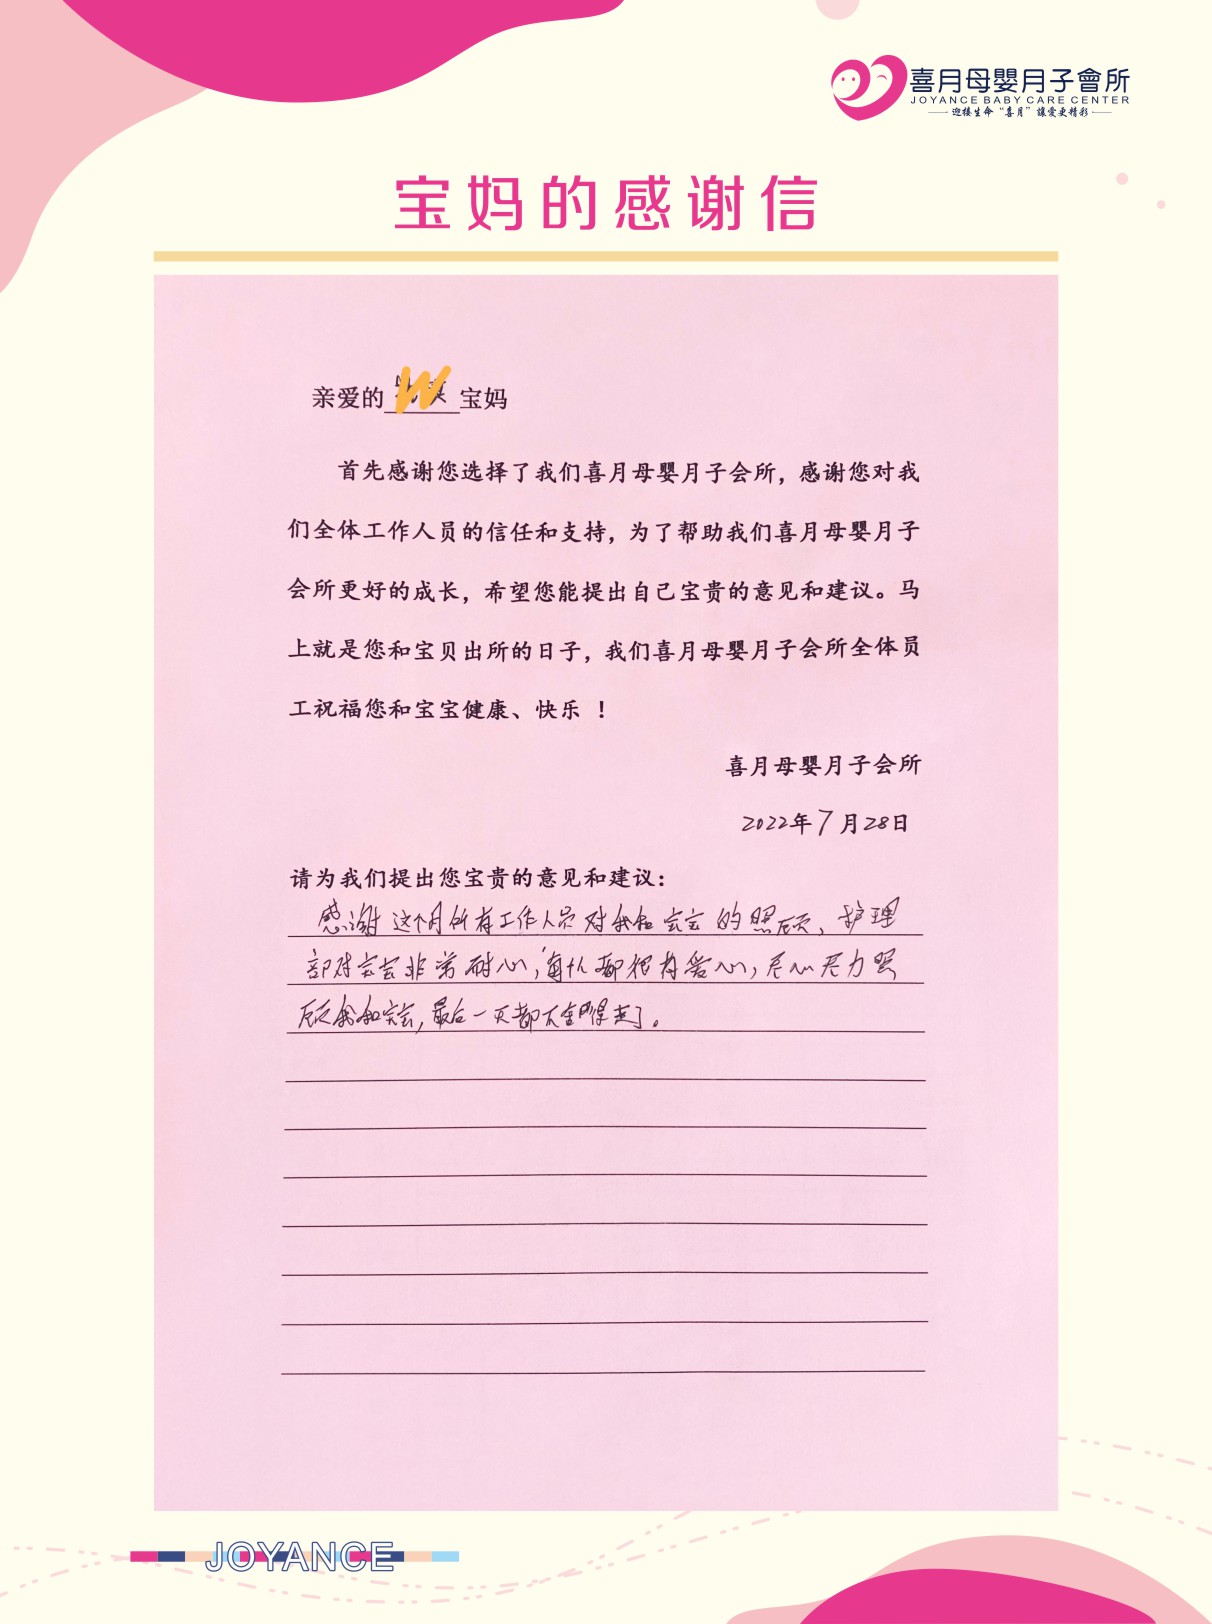 喜月母嬰月子會所
JOYANCE BABY CARE CENTER
迎接生命“喜月”讓愛更精彩
宝妈的感谢信
亲爱的 宝妈
首先感谢您选择了我们喜月母婴月子会所，感谢您对我
们全体工作人员的信任和支持，为了帮助我们喜月母婴月子
会所更好的成长，希望您能提出自己宝贵的意见和建议。马
上就是您和宝贝出所的日子，我们喜月母婴月子会所全体员
工祝福您和宝宝健康、快乐 ！
喜月母婴月子会所
2022年7月28日
请为我们提出您宝贵的意见和建议：
感谢这个月所有工作人员对我和宝宝的照顾，护理
部对宝宝非常耐心，每个都很有爱心，尽心尽力照
顾我和宝宝，最后一天都不舍得走了。
JOYANCE